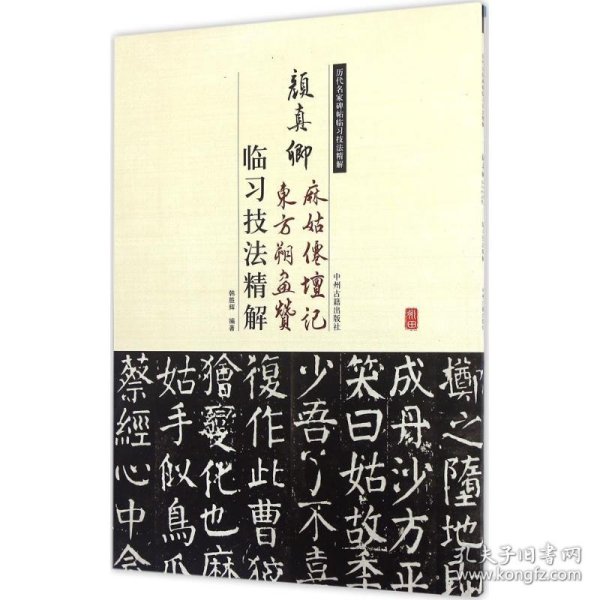 历代名家碑帖临习技法精解
颜真卿
麻姑僊壇記
東方朔畫贊
临习技法精解
韩胜辉 编著
中州古籍出版社
擲之墮地
成丹沙方平
笑曰姑故
少吾了不喜
復作此曹狡
獪變化也麻
姑手似鳥爪
蔡經心中念
孔夫子旧书网
kongfz.com